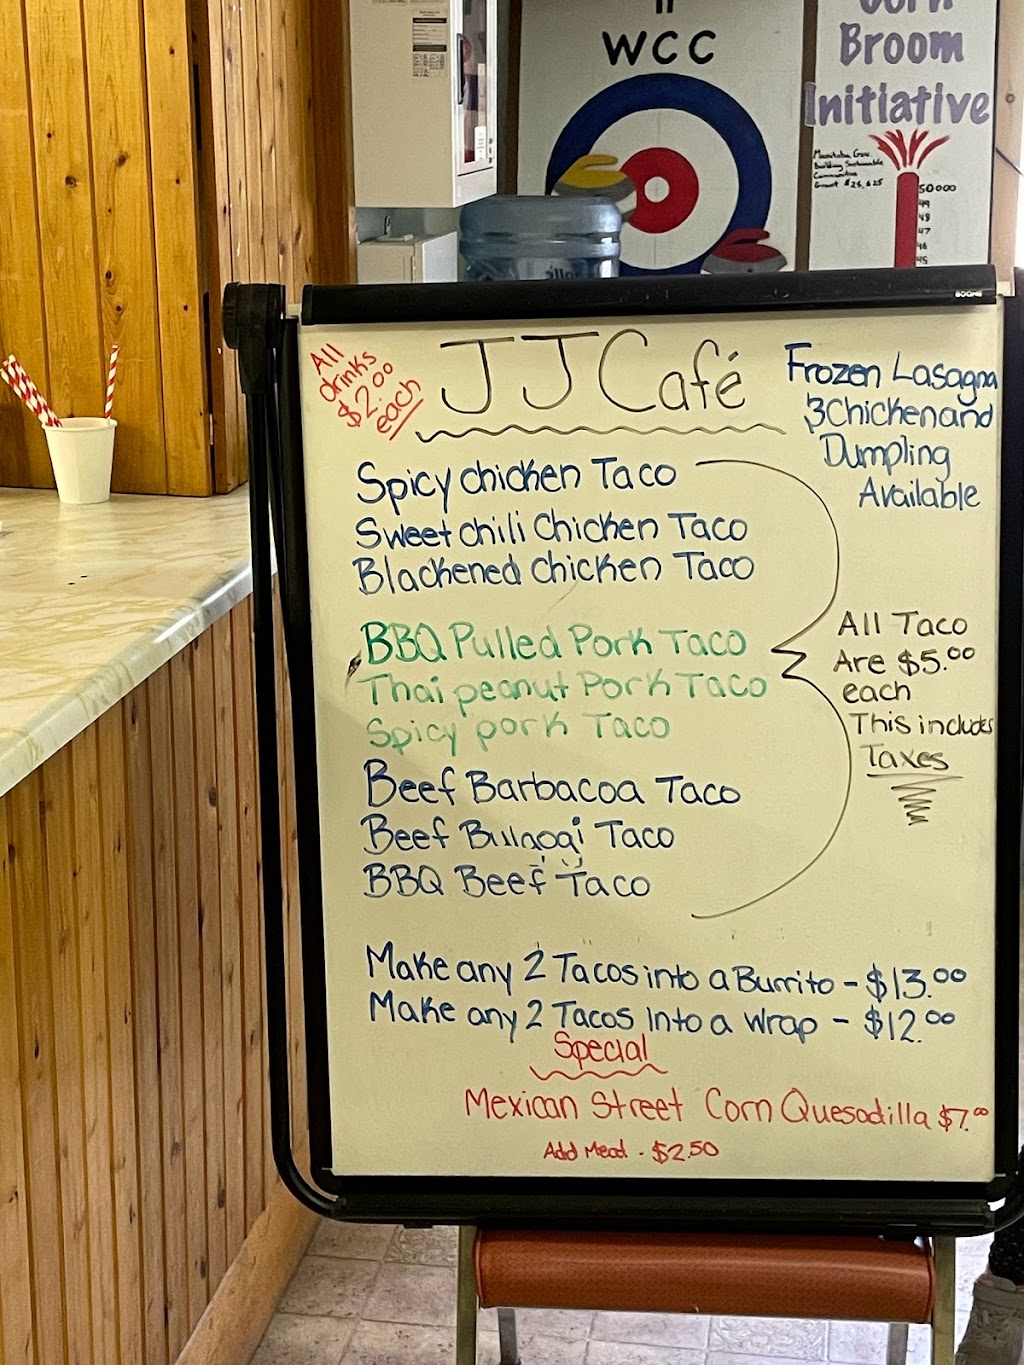 WCC
Corn
Broom
Initiative
Manitoba Gov.
Building Sustainable
Communities
Grant $25,625
50000
49
48
47
46
45
BOONE
All
drinks
$2.00
each
JJ Café
Frozen Lasagna
3 Chicken and
Dumpling
Available
Spicy chicken Taco
Sweet chili Chicken Taco
Blackened chicken Taco
BBQ Pulled Pork Taco
Thai peanut Pork Taco
Spicy pork Taco
Beef Barbacoa Taco
Beef Bulgogi Taco
BBQ Beef Taco
All Taco
Are $5.00
each
This includes
Taxes
Make any 2 Tacos into a Burrito - $13.00
Make any 2 Tacos Into a wrap - $12.00
Special
Mexican Street Corn Quesadilla $7.00
Add Meat - $2.50